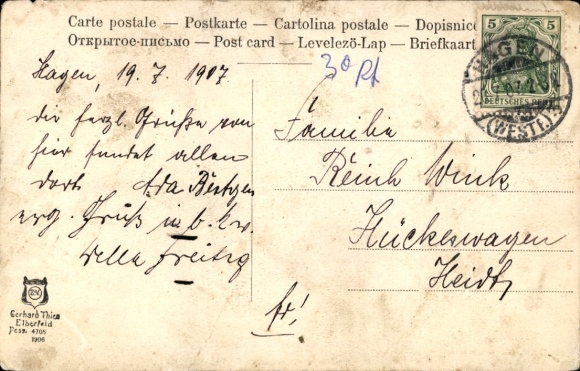 Carte postale — Postkarte — Cartolina postale — Dopisnice
Открытое-письмо — Post card — Levelező-Lap — Briefkaart
5 5
DEUTSCHES REICH
HAGEN
(WESTF.)
30 Pf
Hagen, 19.7.1907.
die herzl. Grüße von
hier sendet allen
dort Ada
erg. Gruß
Freitag
Familie
Reinh Wink
Hückeswagen
Heidt
fr!
Gerhard Thien
Elberfeld
Dess. 4705
1906